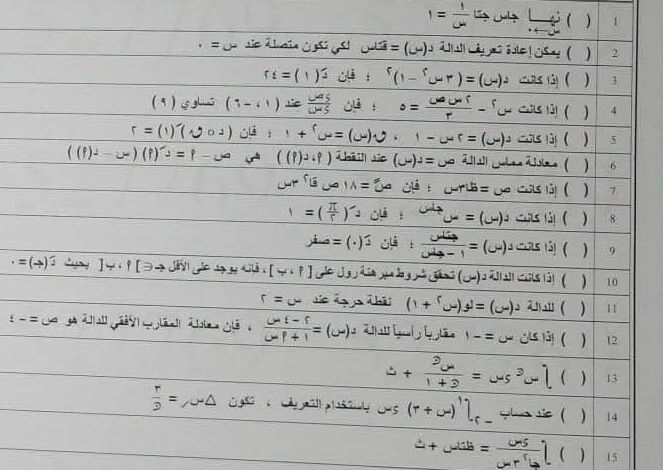 1 ( ) نهـــا س←٠ جاس جتا ١/س = ١
2 ( ) يمكن إعادة تعريف الدالة د(س) = قتاس لكي تكون متصلة عند س = ٠
3 ( ) إذا كانت د(س) = (٣س٢ − ١)٢ ؛ فإن دَ(١) = ٢٤
4 ( ) إذا كانت س٢ − ٢س ص/٣ = ٥ ؛ فإن ءص/ءس عند (١، −٦) تساوي (٩)
5 ( ) إذا كانت د(س) = ٢س − ١ ، ق(س) = س٢ + ١ ؛ فإن (د ٥ ق)َ(١) = ٢
6 ( ) معادلة مماس الدالة ص = د(س) عند النقطة (٩، د(٩)) هي ص − ٩ = دَ(٩) (س − د(٩))
7 ( ) إذا كانت ص = ظا٣س ؛ فإن صً = ١٨ ص قا٢ ٣س
8 ( ) إذا كانت د(س) = س جاس ؛ فإن دَ(π/٢) = ١
9 ( ) إذا كانت د(س) = جتاس/١ − جاس ؛ فإن دَ(٠) = صفر
10 ( ) إذا كانت الدالة د(س) تحقق شروط مبرهنة رول على [٩، ب]، فإنه يوجد على الأقل جـ ∈ ]٩، ب[ بحيث دَ(جـ) = ٠
11 ( ) للدالة د(س) = لو(س٢ + ١) نقطة حرجة عند س = ٢
12 ( ) إذا كان س = −١ مقارباً رأسياً للدالة د(س) = ٢ − ٤س/١ + ٩س ، فإن معادلة المقارب الأفقي للدالة هو ص = −٤
13 ( ) ∫س ن ءس = س ن/ن + ١ + ث
14 ( ) عند حساب −٢∫١ (س + ٣) ءس باستخدام التعريف ، تكون △س ر = ٣/ن
15 ( ) ∫ءس/جا٢ ٣س = ظتاس + ث